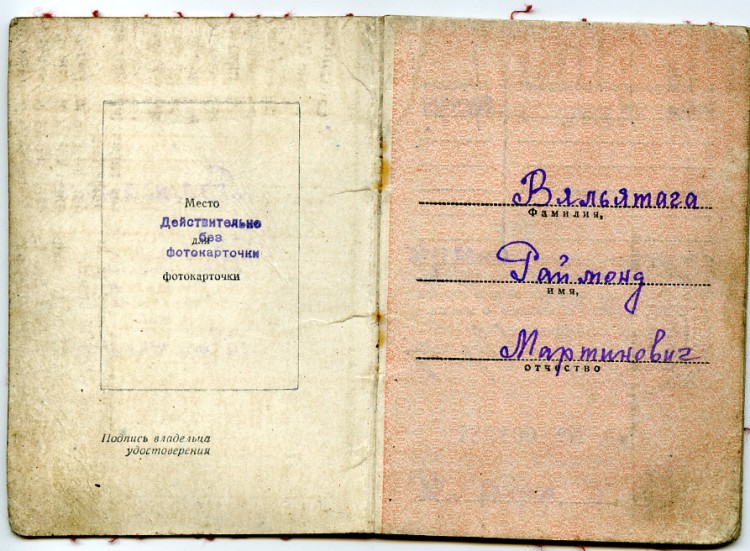 Место
Действительно
для без
фотокарточки
фотокарточки
Подпись владельца
удостоверения
Вяльятага
Фамилия,
Раймонд
имя,
Мартинович
отчество